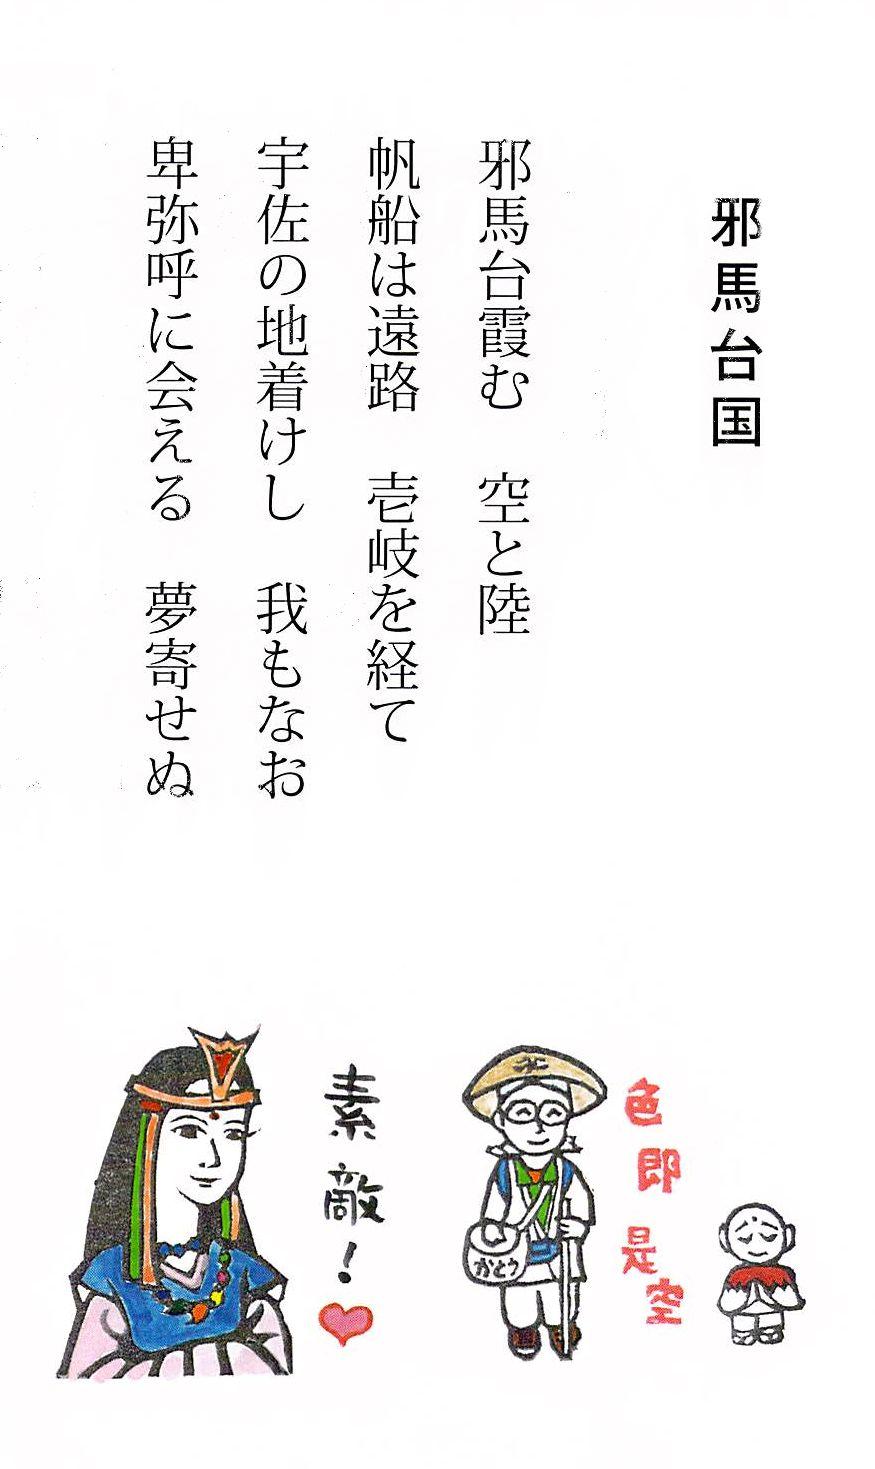 邪馬台国
邪馬台霞む　空と陸
帆船は遠路　壱岐を経て
宇佐の地着けし　我もなお
卑弥呼に会える　夢寄せぬ
色即是空
かとう
素敵！